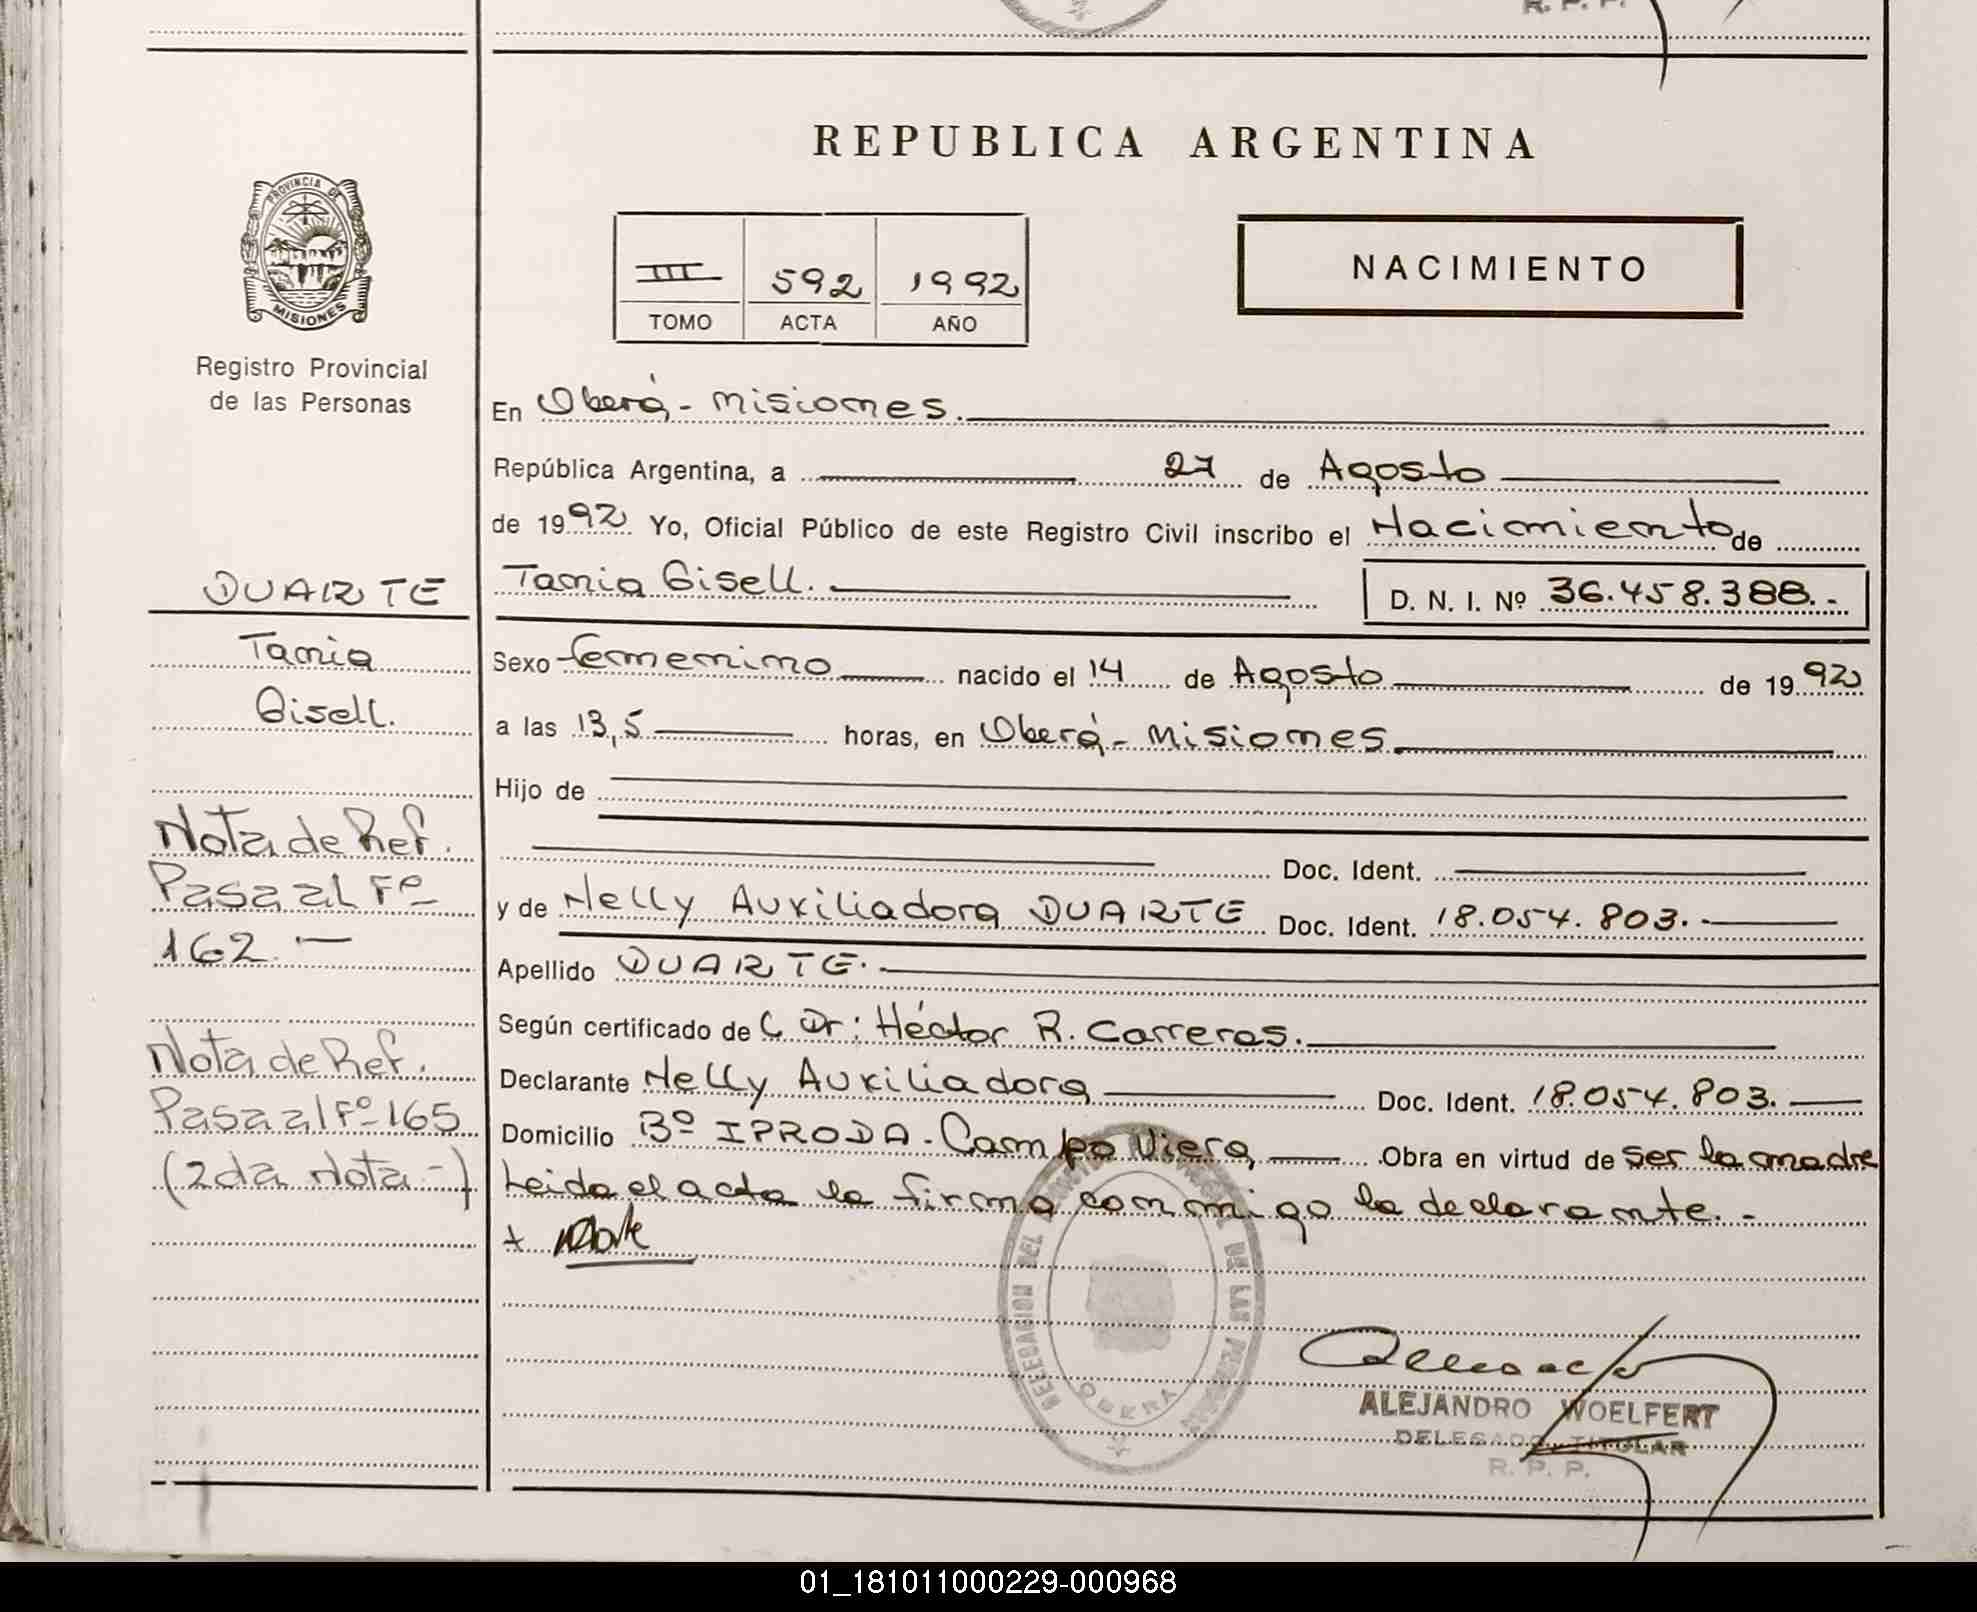 R. P. P.
REPUBLICA ARGENTINA
PROVINCIA DE
MISIONES
Registro Provincial
de las Personas
III 592 1992
TOMO ACTA AÑO
NACIMIENTO
En Oberá - Misiones.
República Argentina, a 27 de Agosto
de 1992 Yo, Oficial Público de este Registro Civil inscribo el Nacimiento de
Tania Gisell. D. N. I. Nº 36.458.388.-
DUARTE
Tania
Gisell.
Sexo femenino nacido el 14 de Agosto de 1992
a las 13,5 horas, en Oberá - Misiones
Hijo de
Doc. Ident.
y de Nelly Auxiliadora DUARTE Doc. Ident. 18.054.803.-
Apellido DUARTE.
Según certificado de Dr: Héctor R. Carreras.
Declarante Nelly Auxiliadora Doc. Ident. 18.054.803.
Domicilio Bº IPRODA - Campo Viera, Obra en virtud de ser la madre
Leida el acta la firma conmigo la declarante. -
Nota de Ref.
Pasa al Fº
162.-
Nota de Ref.
Pasa al Fº 165
(2da Nota-)
DELEGACION DEL DE LAS PERSONAS
OBERA
ALEJANDRO WOELFERT
DELEGADO TITULAR
R. P. P.
01_181011000229-000968